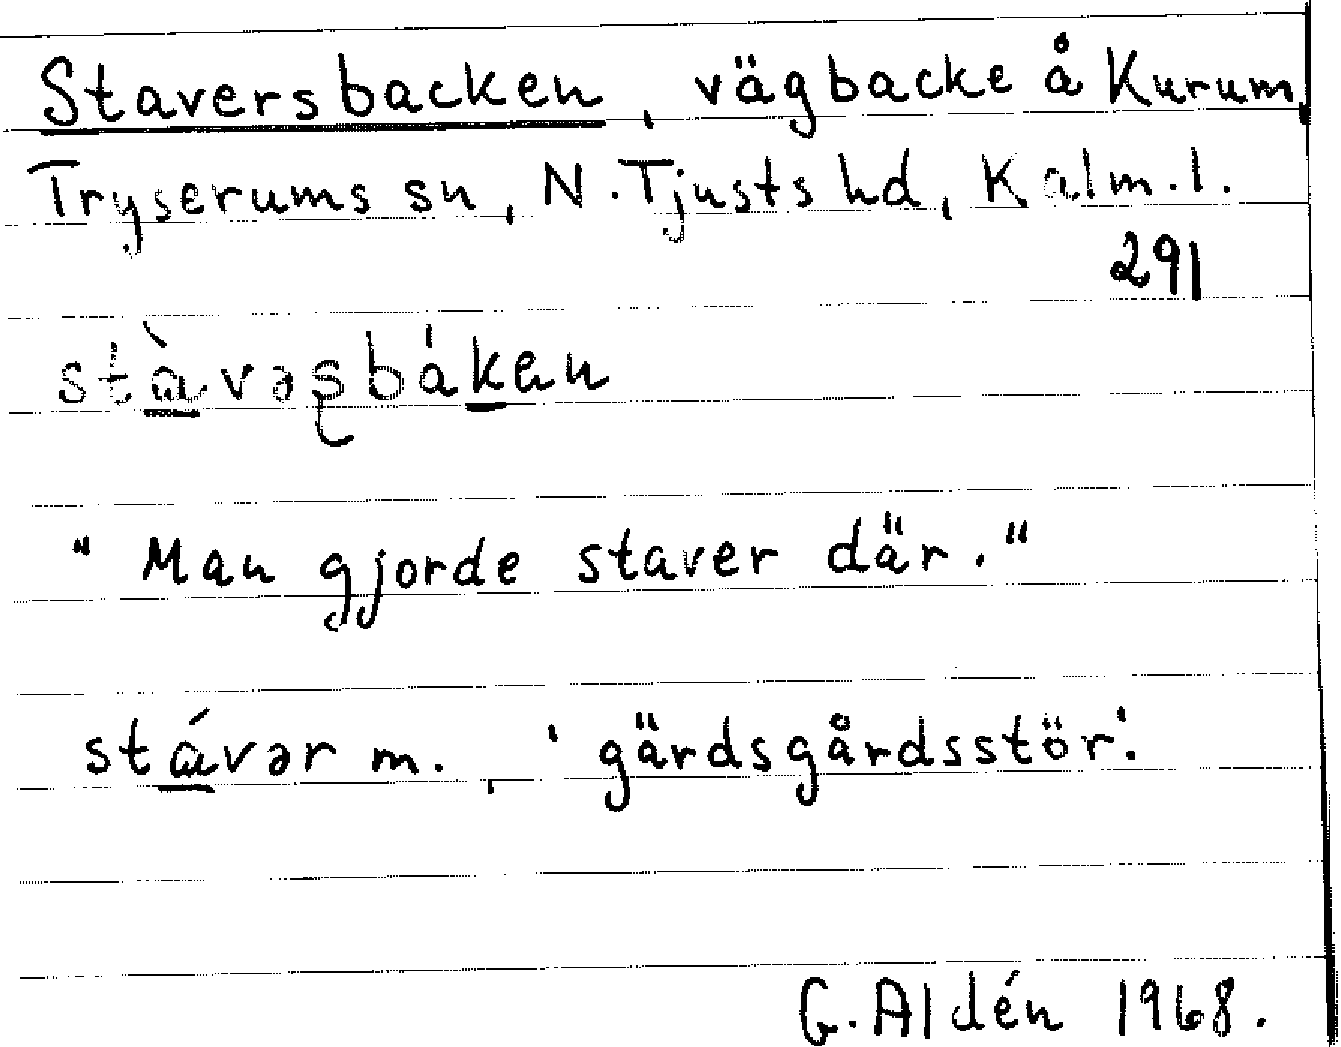 Staversbacken, vägbacke å Kurum,
Tryserums sn, N. Tjusts hd, Kalm. l.
291
stàvəʂbáken
"Man gjorde staver där."
stávər m., 'gärdsgårdsstör'.
G. Aldén 1968.